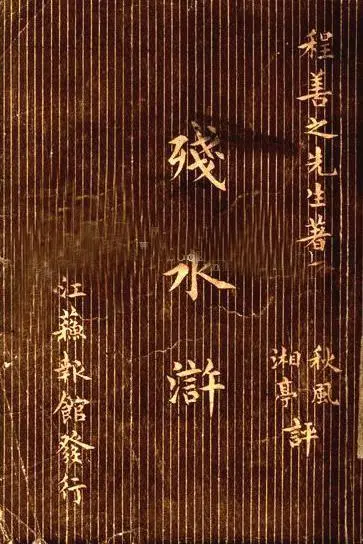 程善之先生著
秋風
湘亭評
殘水滸
江蘇報館發行